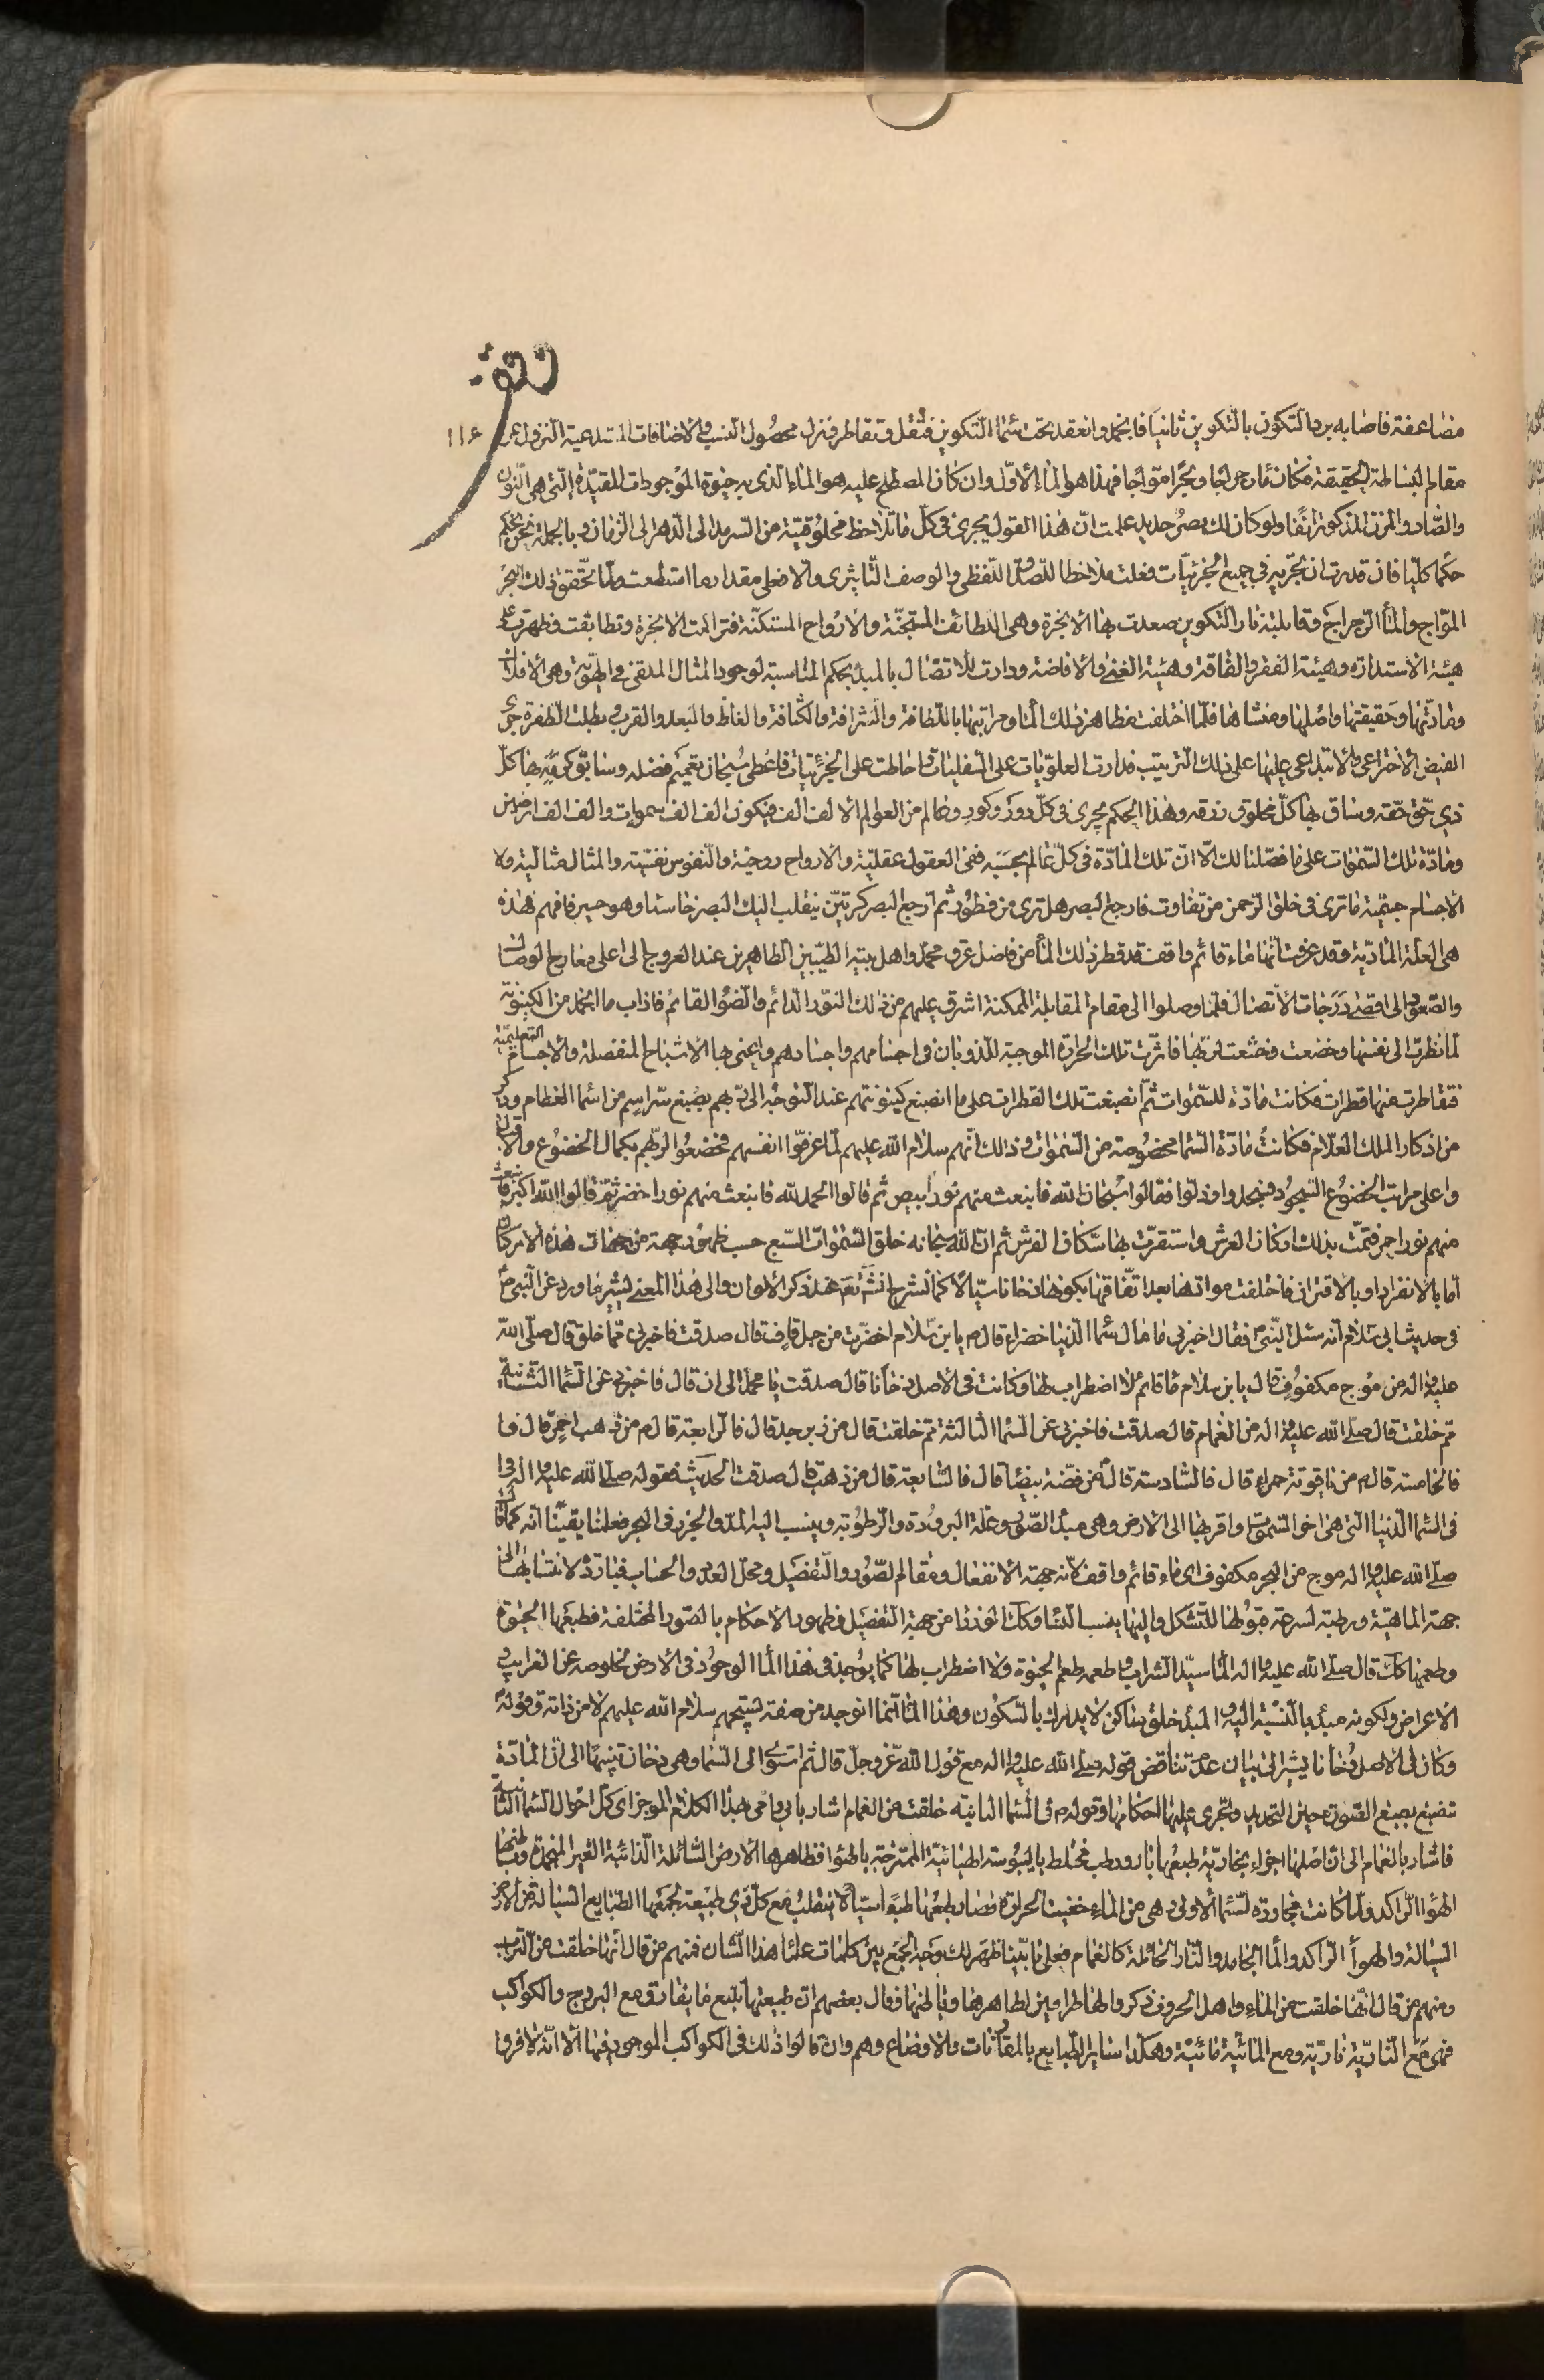 وقف
مضاعفة فاصابه برد التكون بالتكوين ثانيا فانجمد وانعقد تحت سماء التكوين فثقل وتقاطر فنزل محصول النسب والاضافات المستدعية النزول عن ١١٤
مقام البساطة الحقيقة فكان ماء رجراجا وبحرا مواجا فهذا هو الماء الاول وان كان المصطلح عليه هو الماء الذي به حيوة الموجودات المقيدة التي هي النون
والصاد والمزن المذكورة انفا ولو كان لك بصر حديد علمت ان هذا القول يجري في كل ما تلاحظ مخلوقيته من السرمد الى الدهر الى الزمان وبالجملة نحن نحكم
حكما كليا فان قدرت ان تجريه في جميع الجزئيات فعلت ملاحظا للصلوح اللفظي والوصف التأثيري والا فعلى مقدار ما استطعت ولما تحقق ذلك البحر
المواج والماء الرجراج وقابلته نار التكوين صعدت بها الابخرة وهي اللطائف المستجنة والارواح المستكنة فتراكمت الابخرة وتطابقت فظهرت على
هيئة الاستدارة وهيئة الفقر والفاقة وهيئة الغنى والافاضة ودارت للاتصال بالمبدء بحكم المناسبة لوجود المثال الملقى في الهوية وهي الافلاك
ومادتها وحقيقتها واصلها ومنشاها فلما اختلفت مظاهر ذلك الماء ومراتبها باللطافة والشرافة والكثافة والغلظ والبعد والقرب وبطلت الطفرة جرى
الفيض الاختراعي والابتداعي عليها على ذلك الترتيب فدارت العلويات على السفليات واحاطت على الجزئيات فاعطى سبحانه بعميم فضله وسابق كرمه بها كل
ذي حق حقه وساق بها كل مخلوق رزقه وهذا الحكم يجري في كل دور وكور وعالم من العوالم الالف الف فيكون الف الف سموات والف الف ارضين
ومادة تلك السموات على ما فصلنا لك الا ان تلك المادة في كل عالم بحسبه ففي العقول عقلية والارواح روحية والنفوس نفسية والمثال مثالية ولا
الاجسام جسمية ما ترى في خلق الرحمن من تفاوت فارجع البصر هل ترى من فطور ثم ارجع البصر كرتين ينقلب اليك البصر خاسئا وهو حسير فافهم هذه
هي العلة المادية وقد عرفت انها ماء قائم واقف قد قطر ذلك الماء من فاضل عرق محمد واهل بيته الطيبين الطاهرين عند العروج الى اعلى معارج الوصال
والصعود الى اقصى درجات الاتصال فلما وصلوا الى مقام المقابلة الممكنة اشرق عليهم من ذلك النور الدائم والضوء القائم فاذاب ما انجمد من الكينونة
لما نظرت الى نفسها وخضعت وخشعت لربها فاثرت تلك الحرارة الموجبة للذوبان في اجسامهم واجسادهم واعني بها الاشباح المنفصلة والاجسام التعليمية
فتقاطرت منها قطرات فكانت مادة للسموات ثم انصبغت تلك القطرات على ما انصبغ كينونتهم عند التوجه الى ربهم بصبغ سر اسم من اسماء العظام وذكر
من اذكار الملك العلام فكانت مادة السماء مخصوصة من السموات وذلك انهم سلام الله عليهم لما عرفوا انفسهم فخضعوا لربهم بكمال الخضوع والاقبال
واعلى مراتب الخضوع السجود فسجدوا وذلوا فقالوا سبحان الله فانبعث منهم نور ابيض ثم قالوا الحمد لله فانبعث منهم نور اخضر ثم قالوا الله اكبر فانبعث
منهم نور احمر فتمت بذلك اركان العرش واستقرت بها سكان الفرش ثم ان الله سبحانه خلق السموات السبع حسب ظهور جهة من جهات هذه الاركان
اما بالانفراد او بالاقتران فاختلفت موادها بعد اتفاقها بكونها دخانا سيالا كما نشرح انشاء الله نع عند ذكر الالوان والى هذا المعنى يشير ما ورد عن النبي ص
في حديث ابن سلام انه سئل النبي ص فقال اخبرني ما بال سماء الدنيا خضراء قال ص يا بن سلام اخضرت من جبل قاف قال صدقت فاخبرني مما خلق قال صلى الله
عليه واله من موج مكفوف قال يا بن سلام ماء قائم لا اضطراب لها وكانت في الاصل دخانا قال صدقت يا محمد الى ان قال فاخبرني عن السماء الثانية
مم خلقت قال صلى الله عليه واله من الغمام قال صدقت فاخبرني عن السماء الثالثة مم خلقت قال من زبرجد قال فالرابعة قال ص من ذهب احمر قال فا
فالخامسة قال ص من ياقوتة حمراء قال فالسادسة قال من فضة بيضاء قال فالسابعة قال من ذهب قال صدقت الحديث فقوله صلى الله عليه واله
في السماء الدنيا التي هي اخر السموات واقربها الى الارض وهي مبدء الصور وعلة البرودة والرطوبة وينسب اليه المد والجزر في البحر فعلمنا يقينا انه كما قال
صلى الله عليه واله موج من البحر مكفوف اي ماء قائم واقف لانه جهة الانفعال ومقام الصور والتفصيل ومحل العدد والحساب فباردة لانتسابها الى
جهة الماهية ورطبة لسرعة قبولها للتشكل واليها ينسب النساء وكك لونها من جهة التفصيل فظهور الاحكام بالصور المختلفة فطبعها الحيوة
وطعمها كك قال صلى الله عليه واله الماء سيد الشراب وطعمه طعم الحيوة ولا اضطراب لها كما يوجد في هذا الماء الوجود في الارض لخلوصه عن الغرائب و
الاعراض ولكونه مبدء بالنسبة اليه والمبدء خلق ساكن لا يدرك بالسكون وهذا الماء انما انوجد من صفة تسبيحهم سلام الله عليهم لا من ذاته وقوله
وكان في الاصل دخانا يشير الى بيان عدم تناقض قوله صلى الله عليه واله مع قول الله عز وجل قال ثم استوى الى السماء وهي دخان تنبيها الى ان المادة
تنصبغ بصبغ الصورة حين التحديد وتجري عليها احكامها وقوله ص في السماء الثانية خلقت من الغمام اشار بابي وامي بهذا الكلام الموجز الى كل احوال السماء الثانية
فاشار بالغمام الى ان اصلها اجزاء بخارية طبعها بارد رطب مختلط باليبوسة الهبائية الممتزجة بالهواء فظاهرها الارض السائلة الذائبة الغير المنجمدة وباطنها
الهواء الراكد ولما كانت مجاورة لسماء الاولى وهي من الماء خفيت الحرارة فصار طبعها طبعا سيالا ينقلب مع كل ذي طبيعة لجمعها الطبايع السيالة من الارض
السيالة والهواء الراكد والماء الجامد والنار الحائلة كالغمام فعلى ما بينا ظهر لك وجه الجمع بين كلمات علماء هذا الشان فمنهم من قال انها خلقت من التراب
ومنهم من قال انها خلقت من الماء واهل الحروف ذكروا لها طرفين لظاهرها وباطنها وقال بعضهم ان طبيعتها تتبع ما يقارن مع البروج والكواكب
فهي مع النارية نارية ومع المائية مائية وهكذا ساير الطبايع بالمقارنات والاوضاع وهم وان قالوا ذلك في الكواكب الموجود فيها الا انه لا فرق